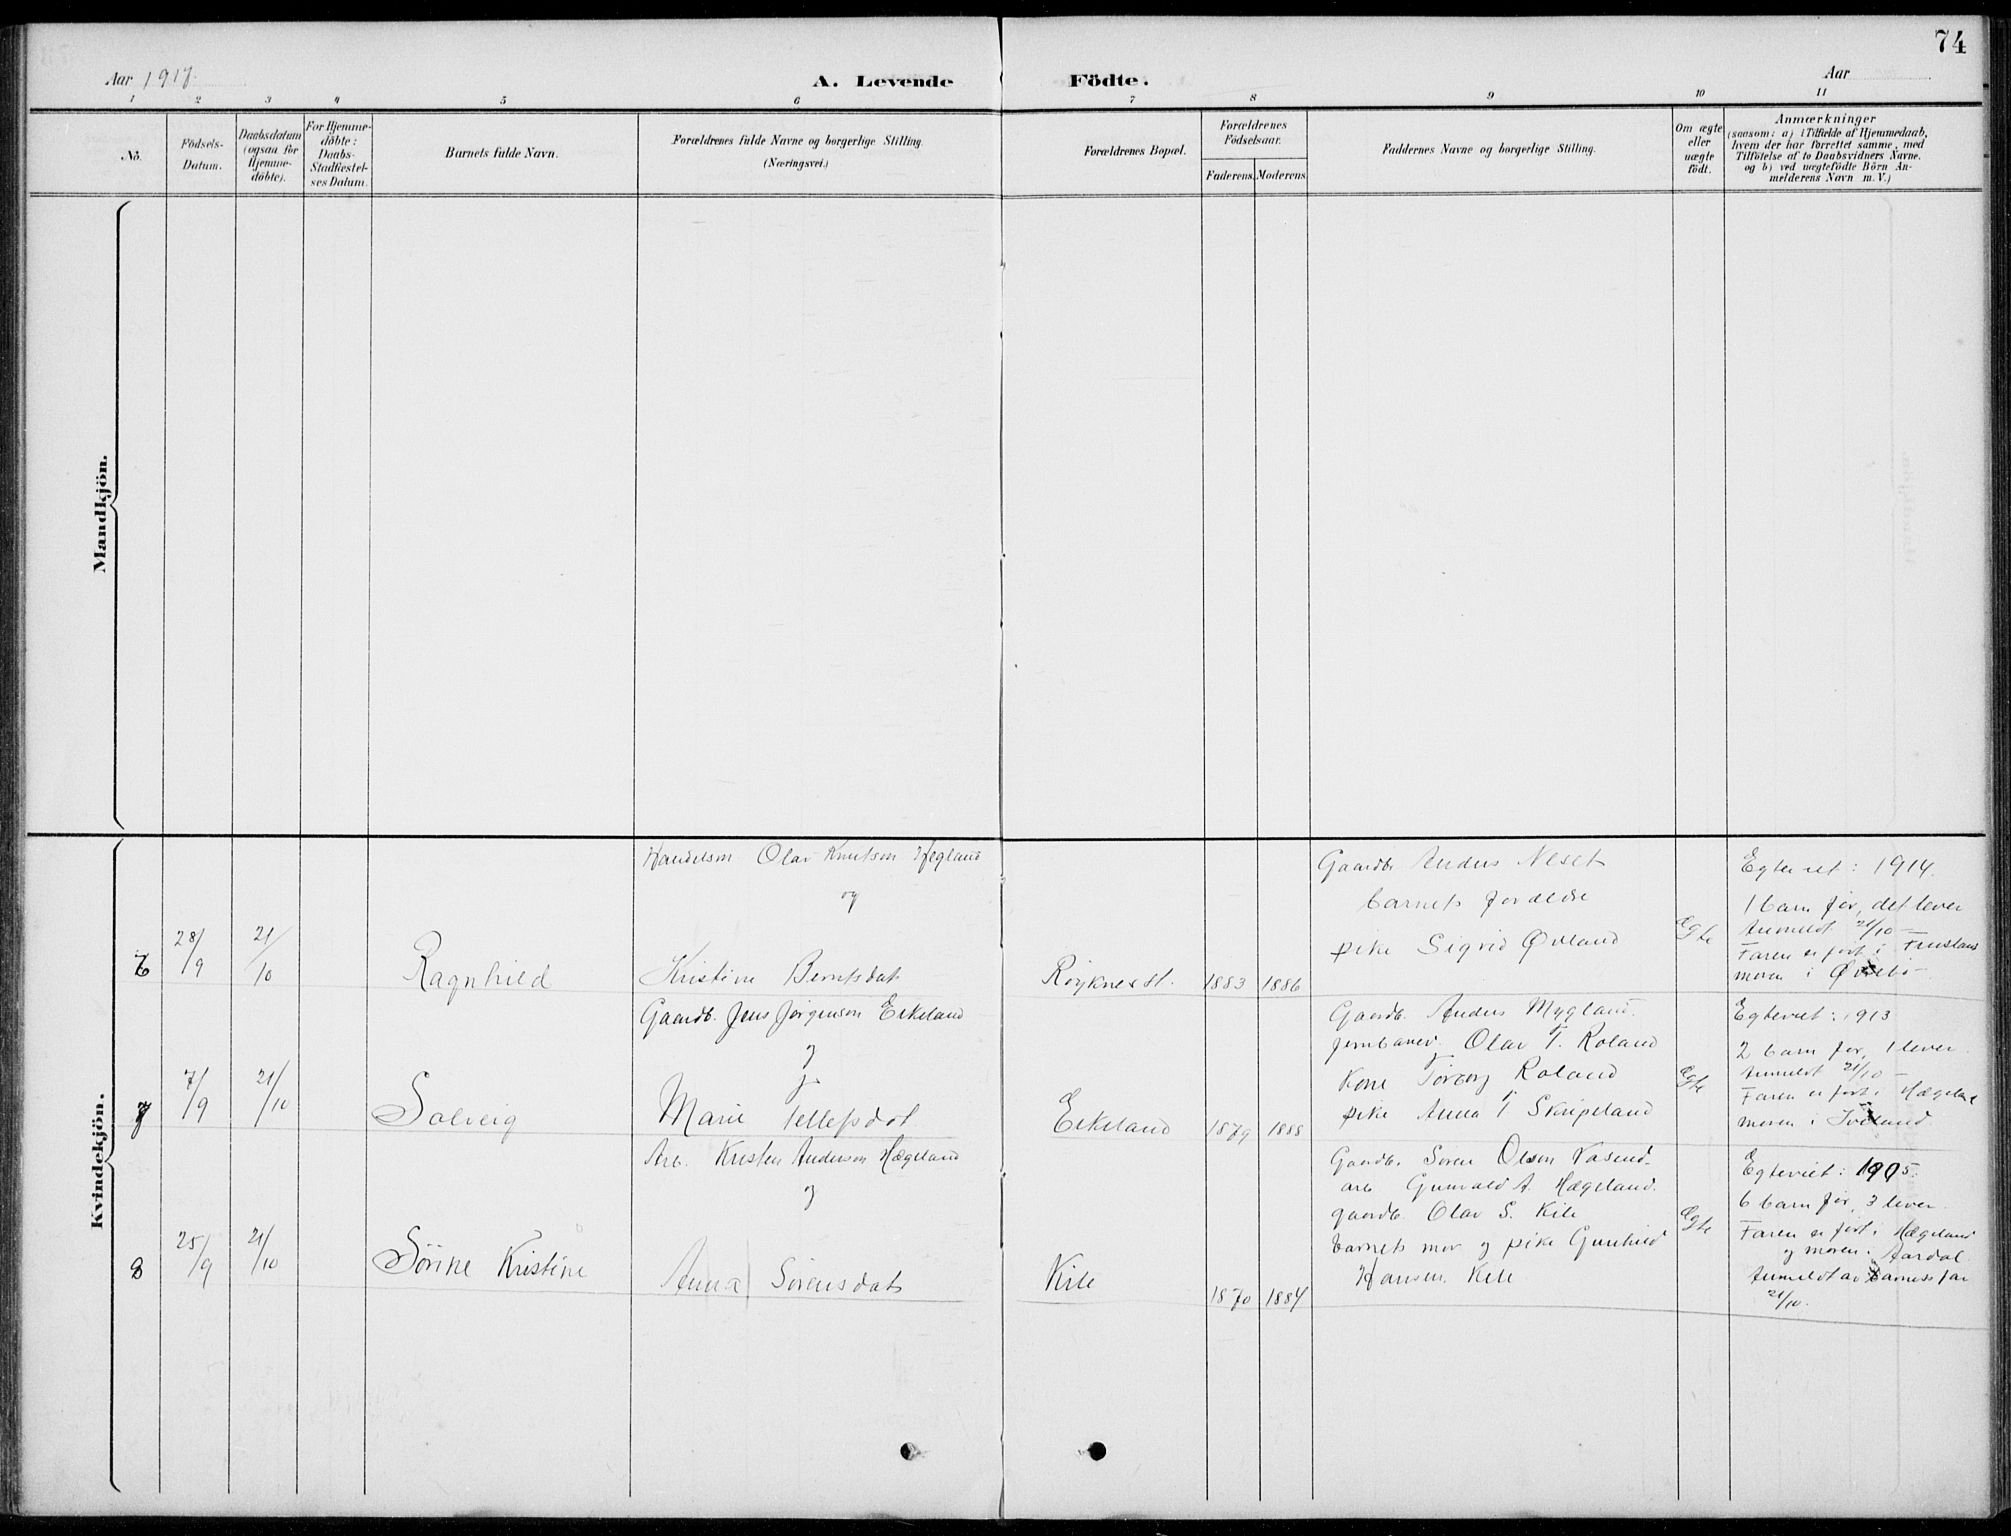 74
Aar 1917.
A. Levende Födte.
Aar
1 2 3 4 5 6 7 8 9 10 11
Nō.
Födsels-
Datum.
Daabsdatum
(ogsaa for
Hjemme-
döbte).
For Hjemme-
döbte:
Daabs-
Stadfæstel-
ses Datum.
Barnets fulde Navn.
Forældrenes fulde Navne og borgerlige Stilling
(Næringsvei.)
Forældrenes Bopæl.
Forældrenes
Födselsaar.
Faderens. Moderens
Faddernes Navne og borgerlige Stilling.
Om ægte
eller
uægte
födt.
Anmærkninger
(saasom: a) i Tilfælde af Hjemmedaab,
hvem der har forrettet samme, med
Tilföielse af to Daabsvidners Navne,
og b) ved uægtefödte Börn An-
melderens Navn m. V.)
Mandkjön.
Kvindekjön.
6
28/9
21/10
Ragnhild
Handelsm Olav Knutson Hægland
og
Kristine Berntsdat
Røyknesst.
1883 1886
Gaardb. Anders Neset
barnets foreldre
pike Sigrid Øvland
Ægte
Egteviet: 1914.
1 barn før, det lever
Anmeldt 21/10 –
Faren er født i
moren i Øvrebø –
7
7/9
21/10
Solveig
Gaardb. Jens Jørgenson Eikeland
og
Marie Tellefsdat
Eikeland
1879 1888
Gaardb. Anders Mygland.
jernbanev. Olav T. Roland
Kone Torborg Roland
pike Anna T Skripeland
Ægte
Egteviet: 1913
2 barn før, 1 lever
Anmeldt 21/10 –
Faren er født i Hægeland
moren i Iveland
8
25/9
21/10
Sørine Kristine
Arb. Kristen Anderson Hægeland
og
Anna Sørensdat
Kile
1870 1884
Gaardb. Søren Olson Vasend.
arb Gunvald A. Hægeland.
gaardb. Olav S. Kile
barnets mor og pike Gunhild
Hansen Kile
Ægte
Egteviet: 1905.
6 barn før, 3 lever.
Faren er født i Hægeland
og moren i Aardal
Anmeldt av barnets far
21/10.